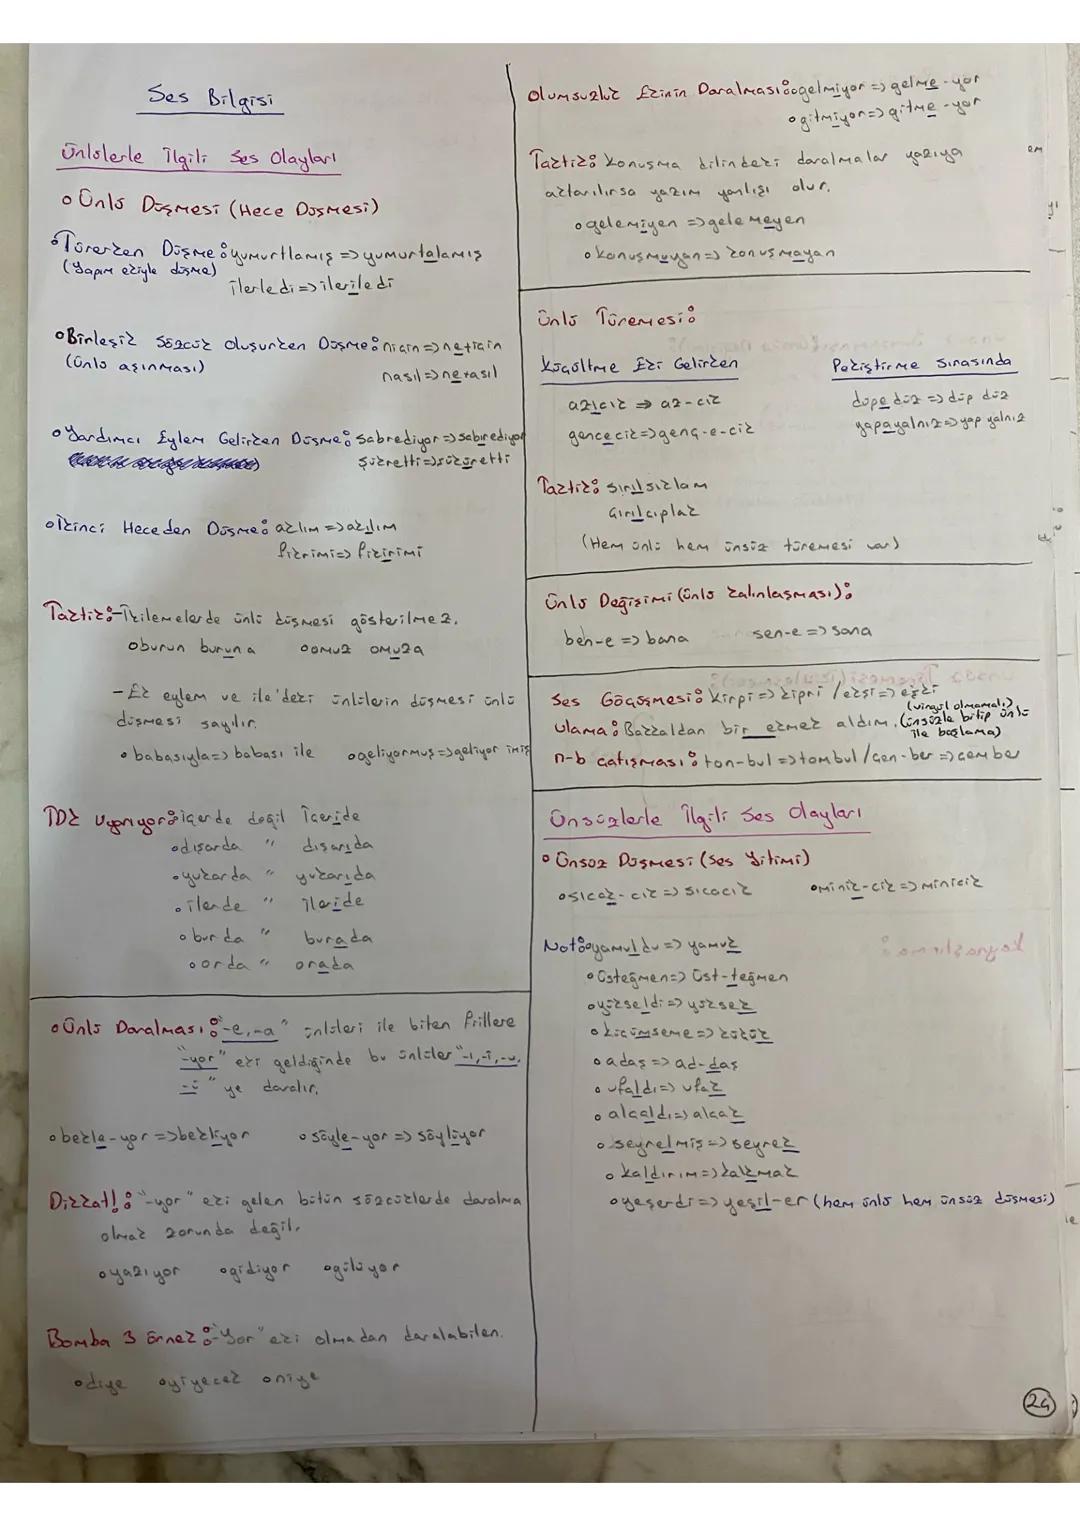 Ses Bilgisi
Ünlülerle İlgili Ses Olayları
Ünlü Düşmesi (Hece Düşmesi)
Türerken Düşme: yumurtlamış => yumurtalamış
(Yapım ekiyle düşme)
ilerledi => ileriledi
Birleşik Sözcük Oluşurken Düşme: niçin => ne için
(Ünlü aşınması)
nasıl => ne asıl
Yardımcı Eylem Gelirken Düşme: sabrediyor => sabırediyor
şükretti => şüküretti
İkinci Heceden Düşme: aklım => akılım
fikrimi => fikirimi
Taktik: -İkilemelerde ünlü düşmesi gösterilmez.
burun buruna omuz omuza
- Ek eylem ve ile'deki ünlülerin düşmesi ünlü
düşmesi sayılır.
babasıyla => babası ile geliyormuş => geliyor imiş
TDK Uyarıyor: içerde değil İçeride
dışarda " dışarıda
yukarda " yukarıda
ilerde " ileride
burda " burada
orda " orada
Ünlü Daralması: "-e, -a" ünlüleri ile biten fiillere
"-yor" eki geldiğinde bu ünlüler "-ı, -i, -u,
-ü" ye daralır.
bekle-yor => bekliyor söyle-yor => söylüyor
Dikkat!: "-yor" eki gelen bütün sözcüklerde daralma
olmak zorunda değil.
yazıyor gidiyor gülüyor
Bomba 3 Örnek: "-yor" eki olmadan daralabilen.
diye yiyecek niye
Olumsuzluk Ekinin Daralması: gelmiyor => gelme-yor
gitmiyor => gitme-yor
Taktik: Konuşma dilindeki daralmalar yazıya
aktarılırsa yazım yanlışı olur.
gelemiyen => gelemeyen
konuşmuyan => konuşmayan
Ünlü Türemesi:
Küçültme Eki Gelirken Pekiştirme Sırasında
azıcık => az-cık düpedüz => düp düz
gencecik => genç-e-cik yapayalnız => yap yalnız
Taktik: Sırılsıklam
Çırılçıplak
(Hem ünlü hem ünsüz türemesi var)
Ünlü Değişimi (Ünlü kalınlaşması):
ben-e => bana sen-e => sana
Ses Göçüşmesi: Kirpi => kipri / ekşi => eşki
(virgül olmamalı)
Ulama: Bakkaldan bir ekmek aldım. (ünsüzle bitip ünlü
ile başlama)
n-b çatışması: ton-bul => tombul / çen-ber => çember
Ünsüzlerle İlgili Ses Olayları
Ünsüz Düşmesi (Ses Yitimi)
sıcak-cık => sıcacık minik-cik => minicik
Not: yamuldu => yamuk
Üsteğmen => Üst-teğmen
yükseldi => yüksek
küçümseme => küçük
adaş => ad-daş
ufaldı => ufak
alçaldı => alçak
seyrelmiş => seyrek
kaldırım => kalkmak
yeşerdi => yeşil-er (hem ünlü hem ünsüz düşmesi)
24